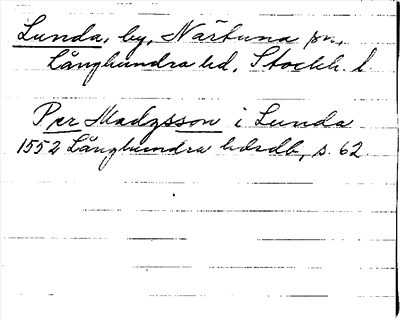 Lunda, by, Närtuna sn.,
Långhundra hd, Stockh. l
Per Madzsson i Lunda
1552 Långhundra hdrdb, s. 62